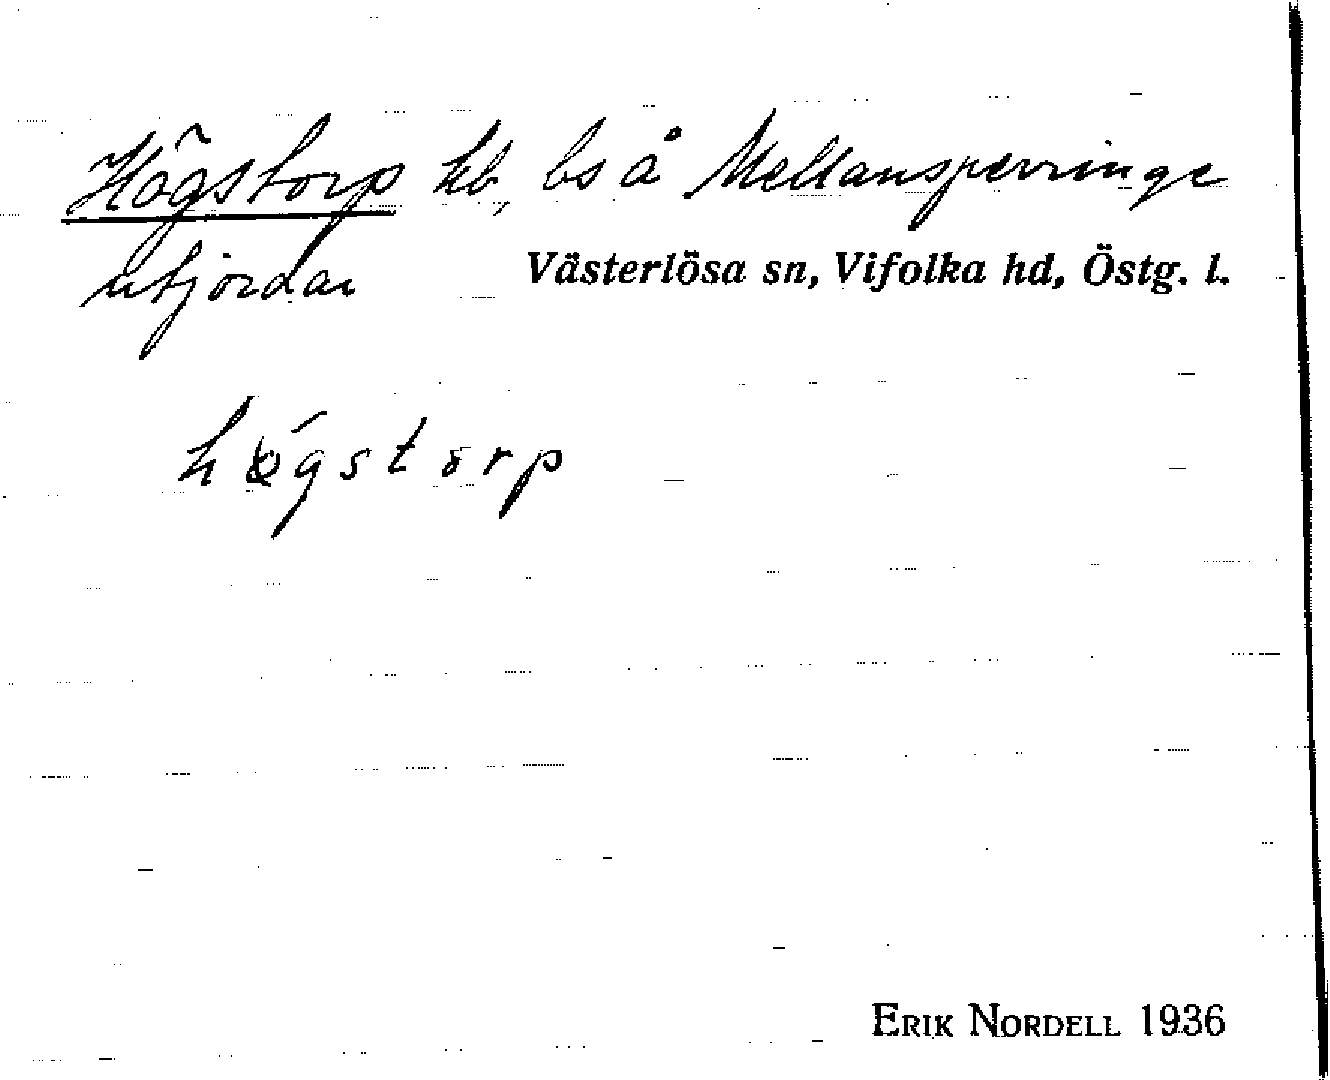 Högstorp hb, bs å Mellansperringe
utjordar
Västerlösa sn, Vifolka hd, Östg. l.
högstorp
ERIK NORDELL 1936